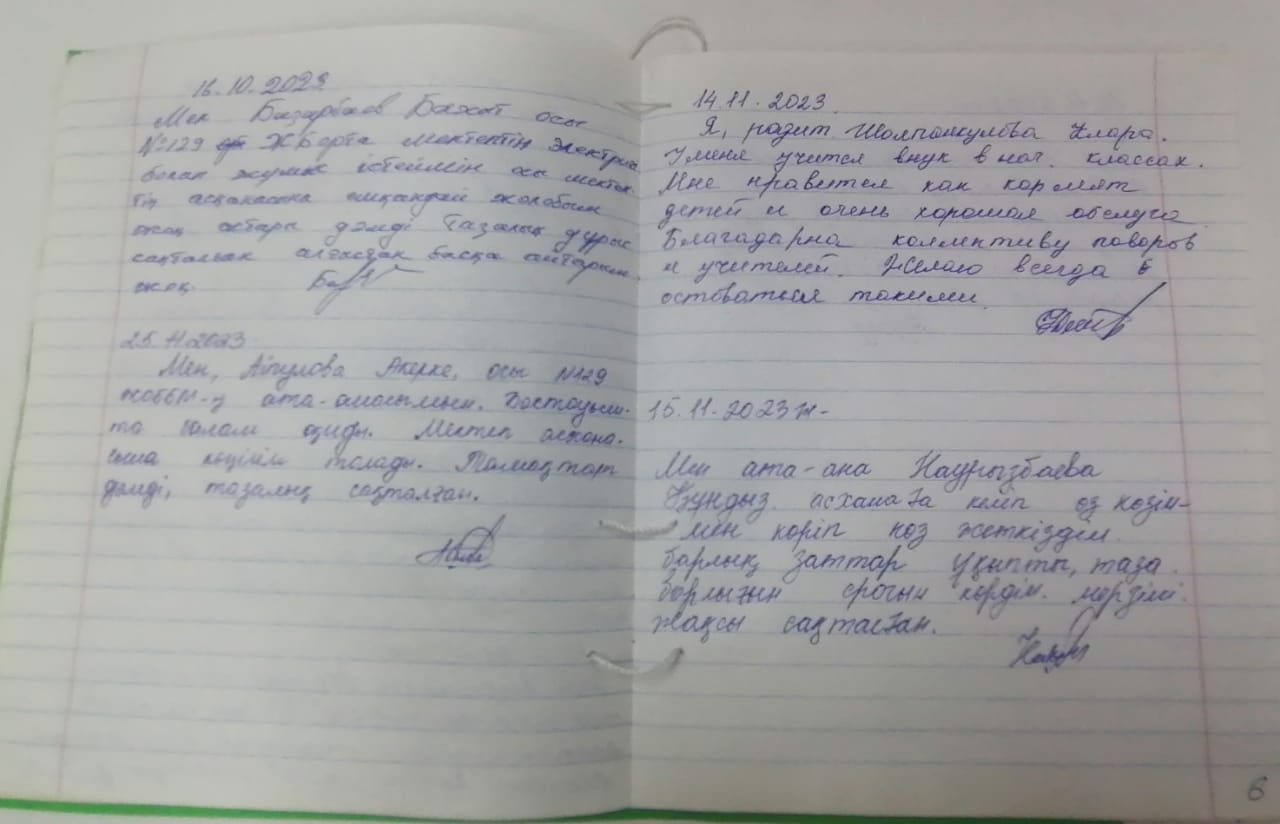 16.10.2023
Мен Базарбаев Бахыт осы
№129 ЖББорта мектептің электрик
болап жумыс істеймін осы мектеп-
тің асханасына ешқандай жалобым
жоқ астары дәмді Тазалық дұрыс
сақталық алғыстан басқа айтарым
жоқ.
25.11.2023
Мен, Акерке, осы №129
ЖОББМ-ң ата-анасымын. Бастауыш-
та балам оқиды. Мектеп асхана-
сына көңілім толады. Тамақтары
дәмді, тазалық сақталған.
14.11.2023.
Я, родит Шолпанкулова Клара.
У меня учится внук в нач. классах.
Мне нравится как кормят
детей и очень хорошая обслуга
Благадарна коллективу поваров
и учителей. Желаю всегда
оставаться такими.
15.11.2023ж-
Мен ата-ана Наурызбаева
Құндыз. асханаға келіп өз көзім-
мен көріп көз жеткіздім.
барлық заттар ұқыпты, таза.
барлығын срогын көрдім. мерзімі.
жақсы сақталған.
6